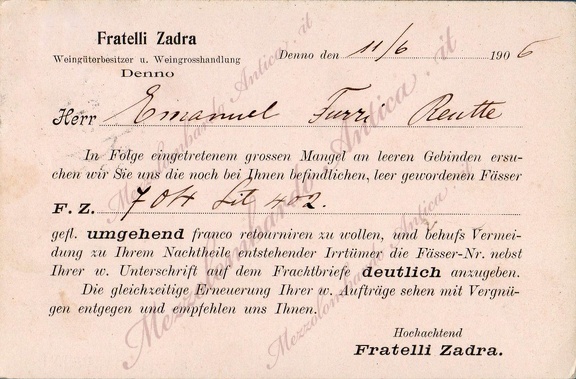 Fratelli Zadra
Weingüterbesitzer u. Weingrosshandlung
Denno
Denno den 11/6 1906
Herr Emanuel Furri Reutte
In Folge eingetretenem grossen Mangel an leeren Gebinden ersu-
chen wir Sie uns die noch bei Ihnen befindlichen, leer gewordenen Fässer
F. Z. 704 Lit 402.
gefl. umgehend franco retourniren zu wollen, und behufs Vermei-
dung zu Ihrem Nachtheile entstehender Irrtümer die Fässer-Nr. nebst
Ihrer w. Unterschrift auf dem Frachtbriefe deutlich anzugeben.
Die gleichzeitige Erneuerung Ihrer w. Aufträge sehen mit Vergnü-
gen entgegen und empfehlen uns Ihnen.
Hochachtend
Fratelli Zadra.
Mezzolombardo Antica.it
Mezzolombardo Antica.it